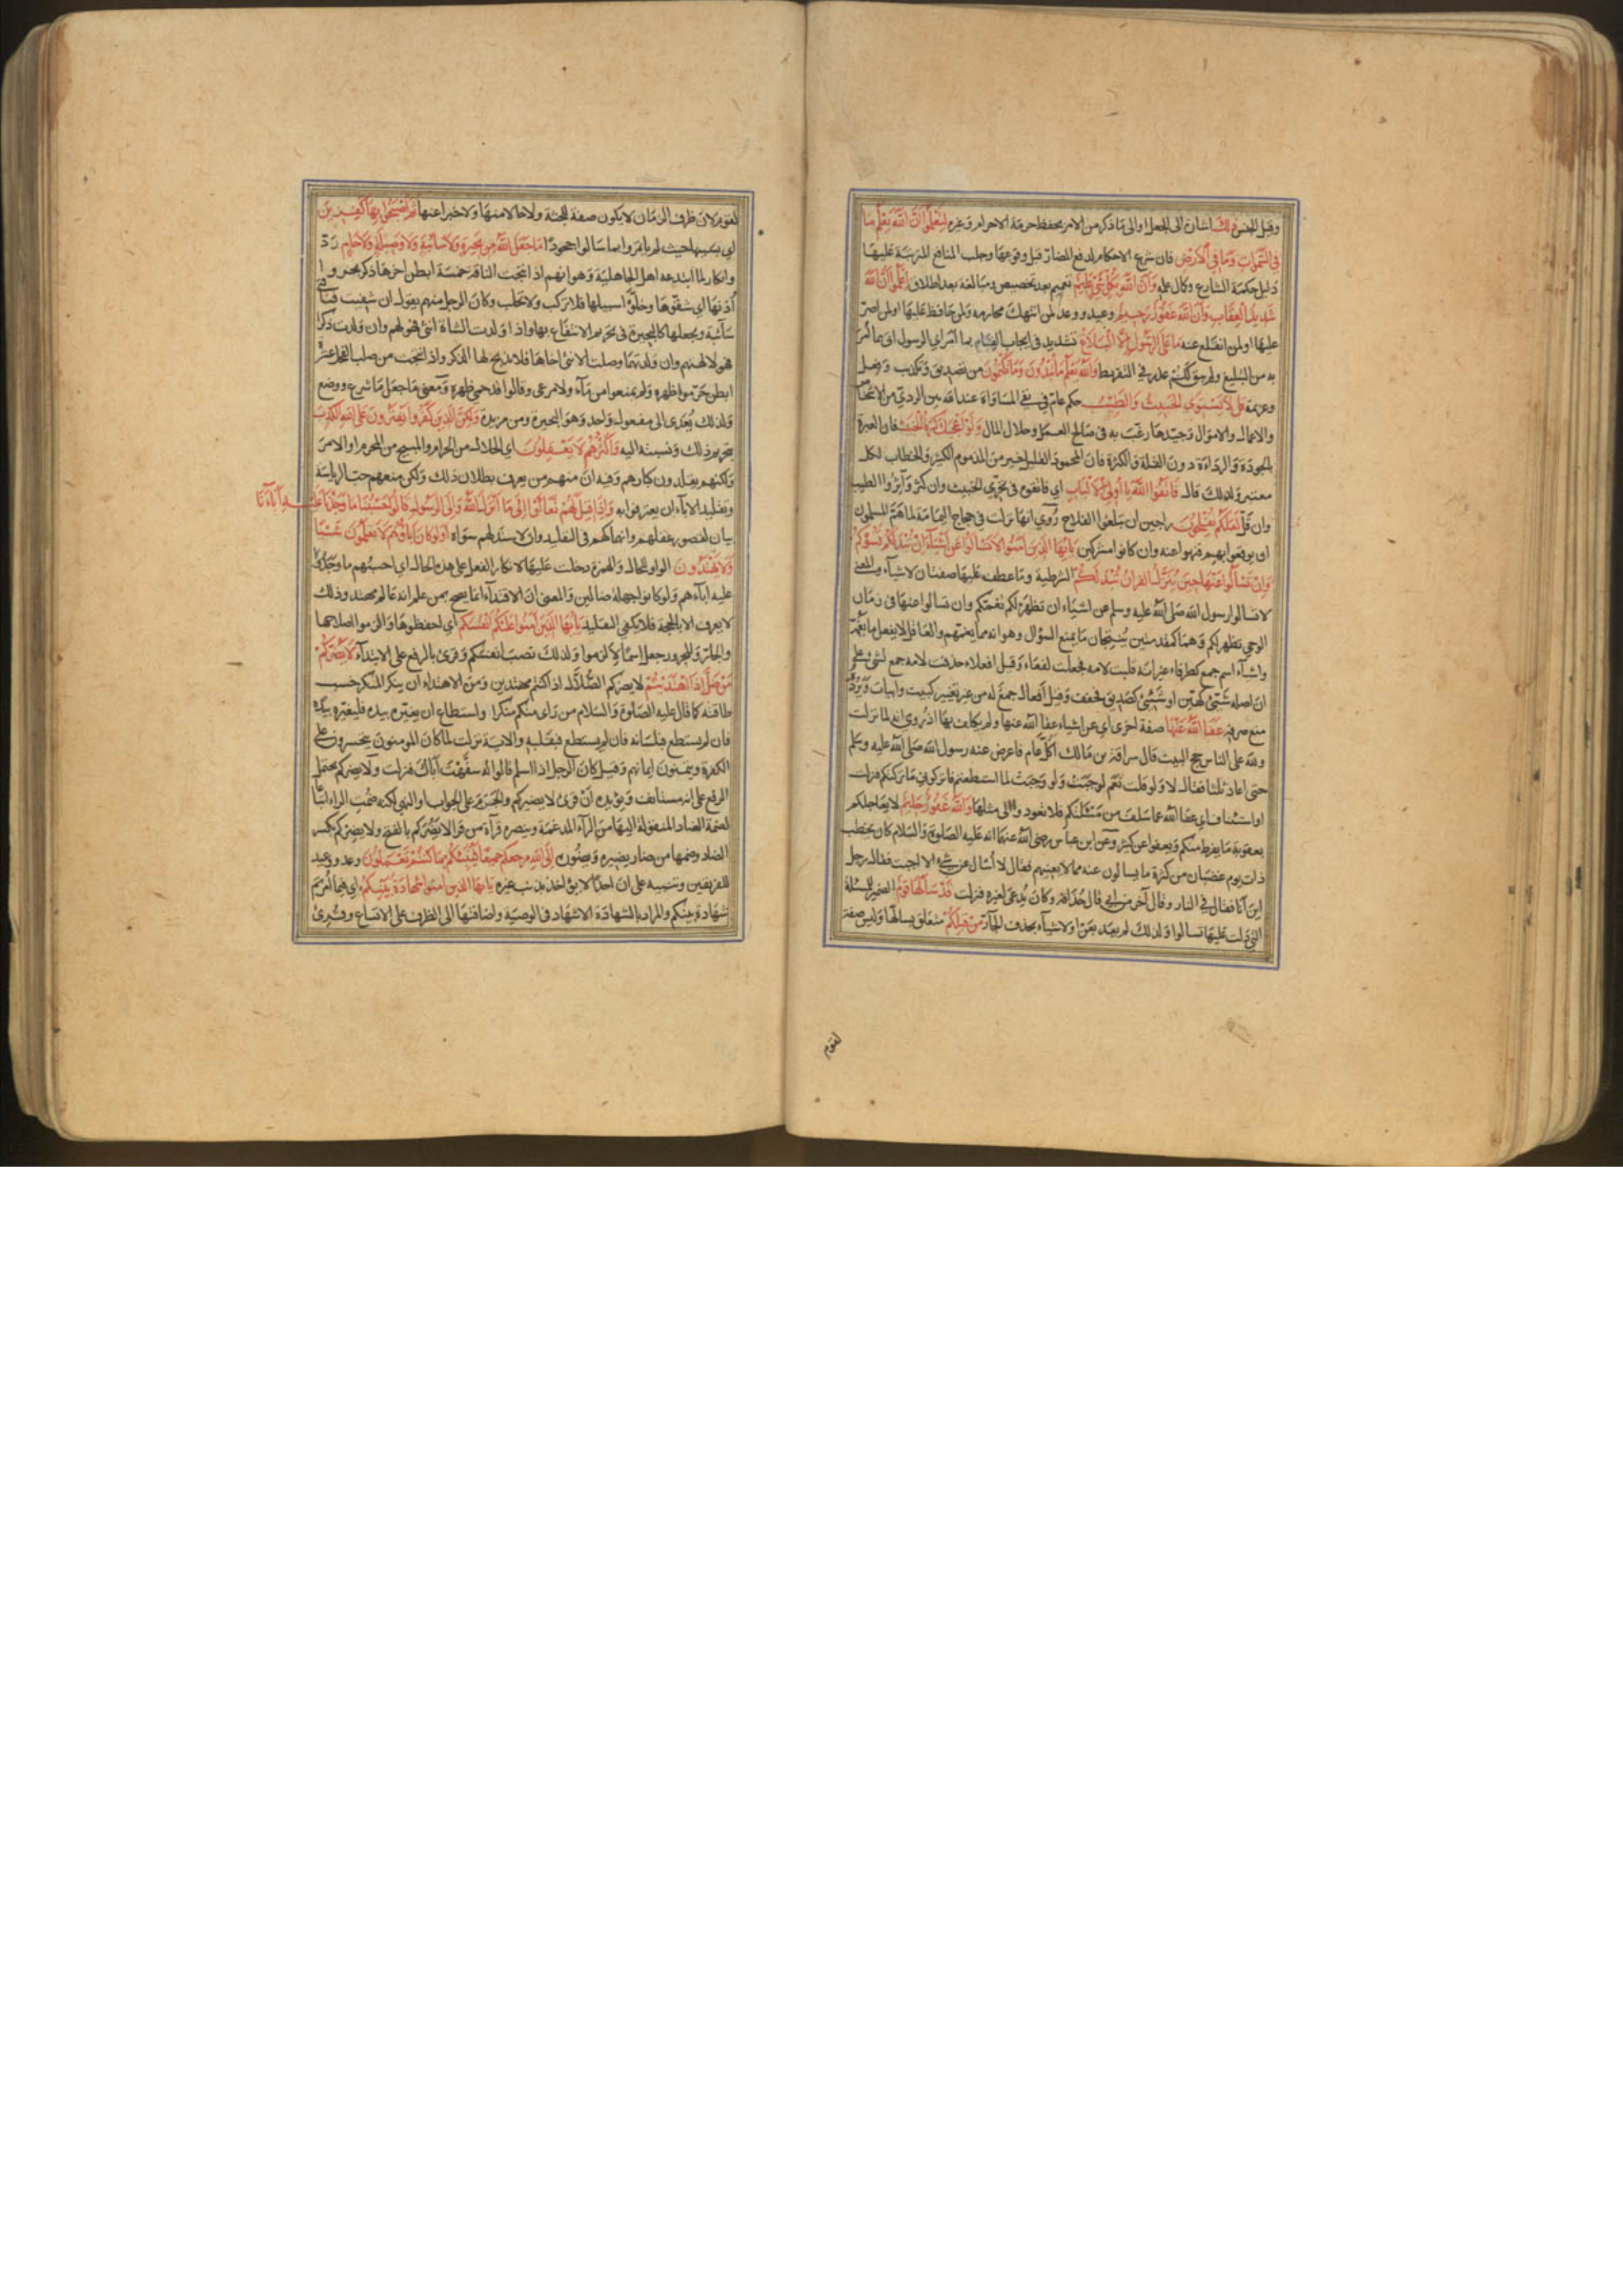 وقيل الجنس ذلك اشارة الى الجعل او الى ما ذكر من الامر بحفظ حرمة الاحرام وغيره لتعلموا ان الله يعلم ما
في السموات وما في الارض فان شرع الاحكام لدفع المضار قبل وقوعها وجلب المنافع المترتبة عليها
دليل حكمة الشارع وكمال علمه وان الله بكل شئ عليم تعميم بعد تخصيص ومبالغة بعد اطلاق اعلموا ان الله
شديد العقاب وان الله غفور رحيم وعيد ووعد لمن انتهك محارمه ولمن حافظ عليها او لمن اصر
عليها او لمن انقلع عنه ما على الرسول الا البلاغ تشديد في ايجاب القيام بما امر اي الرسول اتى بما امر
به من التبليغ ولم يبق لكم عذر في التفريط والله يعلم ما تبدون وما تكتمون من تصديق وتكذيب وفعل
وعزيمة قل لا يستوي الخبيث والطيب حكم عام في نفي المساواة عند الله بين الردي من الاشخاص
والاعمال والاموال وجيدها رغب به في صالح العمل وحلال المال ولو اعجبك كثرة الخبيث فان العبرة
بالجودة والرداءة دون القلة والكثرة فان المحمود القليل خير من المذموم الكثير والخطاب لكل
معتبر ولذلك قال فاتقوا الله يا اولي الالباب اي فاتقوه في تحري الخبيث وان كثر وآثروا الطيب
وان قل لعلكم تفلحون راجين ان تبلغوا الفلاح روي انها نزلت في حجاج اليمامة لما هم المسلمون
ان يوقعوا بهم فنهوا عنه وان كانوا مشركين يايها الذين آمنوا لا تسالوا عن اشيآء ان تبد لكم تسؤكم
وان تسألوا عنها حين ينزل القران تبد لكم الشرطية وما عطف عليها صفتان لاشيآء والمعنى
لا تسالوا رسول الله صلى الله عليه وسلم عن اشياء ان تظهر لكم تغمكم وان تسالوا عنها في زمان
الوحي تظهر لكم وهما كمقدمتين ينتجان ما يمنع السؤال وهو انه مما يغمهم والعاقل لا يفعل ما يغمه
واشيآء اسم جمع كطرفاء غير انه قلبت لامه فجعلت لفعاء وقيل افعلاء حذفت لامه جمع لشئ على
ان اصله شيئ كهين او شيئ كصديق فخفف وقيل افعال جمع له من غير تغيير كبيت وابيات ويرده
منع صرفه عفا الله عنها صفة اخرى اي عن اشياء عفا الله عنها ولم يكلف بها اذ روي انه لما نزلت
ولله على الناس حج البيت قال سراقة بن مالك اكل عام فاعرض عنه رسول الله صلى الله عليه وسلم
حتى اعاد ثلثا فقال لا ولو قلت نعم لوجبت ولو وجبت لما استطعتم فاتركوني ما تركتكم فنزلت
او استئناف اي عفا الله عما سلف من مسئلتكم فلا تعودوا الى مثلها والله غفور حليم لا يعاجلكم
بعقوبة ما يفرط منكم ويعفوا عن كثير وعن ابن عباس رضي الله عنهما انه عليه الصلوة والسلام كان يخطب
ذات يوم غضبان من كثرة ما يسالون عنه مما لا يعنيهم فقال لا أسأل عن شئ الا اجبت فقال رجل
اين انا فقال في النار وقال آخر من ابي قال حذافة وكان يدعى لغيره فنزلت قد سألها قوم الضمير للمسئلة
التي دلت عليها تسالوا ولذلك لم يعد بعن او لاشيآء بحذف الجار من قبلكم متعلق بسألها وليس صفة
لقوم
لقوم لان ظرف الزمان لا يكون صفة للجثة ولا حالا منها ولا خبرا عنها ثم اصبحوا بها كافرين
اي بسببها حيث لم ياتمروا بما سالوا جحودا ما جعل الله من بحيرة ولا سائبة ولا وصيلة ولا حام رد
وانكار لما ابتدعه اهل الجاهلية وهو انهم اذا نتجت الناقة خمسة ابطن اخرها ذكر بحروا
أذنها اي شقوها وخلوا سبيلها فلا تركب ولا تحلب وكان الرجل منهم يقول ان شفيت فناقتي
سآئبة ويجعلها كالبحيرة في تحريم الانتفاع بها واذا ولدت الشاة انثى فهي لهم وان ولدت ذكرا
فهو لالهتهم وان ولدتهما وصلت الانثى اخاها فلا يذبح لها الذكر واذا نتجت من صلب الفحل عشرة
ابطن حرموا ظهره ولم يمنعوا من مآء ولا مرعى وقالوا قد حمي ظهره ومعنى ما جعل ما شرع ووضع
ولذلك يعدى الى مفعول واحد وهو البحيرة ومن مزيدة ولكن الذين كفروا يفترون على الله الكذب
بتحريم ذلك ونسبته اليه واكثرهم لا يعقلون اي الحلال من الحرام والمبيح من المحرم او الامر
ولكنهم يقلدون كبارهم وفيه ان منهم من يعرف بطلان ذلك ولكن منعهم حب الرياسة
وتقليد الآباء ان يعترفوا به واذا قيل لهم تعالوا الى ما انزل الله والى الرسول قالوا حسبنا ما وجدنا عليه آبآءنا
بيان لقصور عقلهم وانهماكهم في التقليد وان لا سند لهم سواه اولو كان اباؤهم لا يعلمون شيئا
ولا يهتدون الواو للحال والهمزة دخلت عليها لانكار الفعل على هذه الحال اي احسبهم ما وجدوا
عليه ابآءهم ولو كانوا جهلة ضالين والمعنى ان الاقتداء انما يصح بمن علم انه عالم مهتد وذلك
لا يعرف الا بالحجة فلا يكفي التقليد يايها الذين آمنوا عليكم انفسكم اي احفظوها والزموا اصلاحها
والجار والمجرور جعل اسما لالزموا ولذلك نصب انفسكم وقرئ بالرفع على الابتدآء لا يضركم
من ضل اذا اهتديتم لا يضركم الضلال اذا كنتم مهتدين ومن الاهتداء ان ينكر المنكر حسب
طاقته كما قال عليه الصلوة والسلام من رأى منكم منكرا واستطاع ان يغيره بيده فليغيره بيده
فان لم يستطع فبلسانه فان لم يستطع فبقلبه والاية نزلت لما كان المومنون يتحسرون على
الكفرة ويتمنون ايمانهم وقيل كان الرجل اذا اسلم قالوا له سفهت آباك فنزلت ولا يضركم يحتمل
الرفع على انه مستانف ويؤيده أن قرئ لا يضيركم والجزم على الجواب او النهي لكنه ضمت الراء اتباعا
لضمة الضاد المنقولة اليها من الرآء المدغمة وينصره قرآة من قرا لا يضركم بالفتح ولا يضركم بكسر
الضاد وضمها من ضار يضيره ويضوره الى الله مرجعكم جميعا فينبئكم بما كنتم تعملون وعد ووعيد
للفريقين وتنبيه على ان احدا لا يؤاخذ بذنب غيره يايها الذين امنوا شهادة بينكم اي فيما أمرتم
شهادة بينكم والمراد بالشهادة الاشهاد في الوصية واضافتها الى الظرف على الاتساع وقرئ